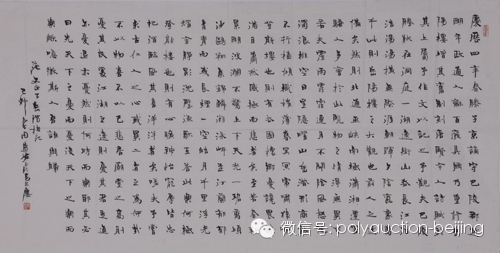 慶曆四年春滕子京謫守巴陵郡越
明年政通人和百廢具興乃重修岳
陽樓增其舊制刻唐賢今人詩賦于
其上屬予作文以記之予觀夫巴陵
勝狀在洞庭一湖銜遠山吞長江浩
浩湯湯橫無際涯朝暉夕陰氣象萬
千此則岳陽樓之大觀也前人之述
備矣然則北通巫峽南極瀟湘遷客
騷人多會於此覽物之情得無異乎
若夫霪雨霏霏連月不開陰風怒號
濁浪排空日星隱曜山岳潛形商旅
不行檣傾楫摧薄暮冥冥虎嘯猿啼
登斯樓也則有去國懷鄉憂讒畏譏
滿目蕭然感極而悲者矣至若春和
景明波瀾不驚上下天光一碧萬頃
沙鷗翔集錦鱗游泳岸芷汀蘭郁郁
青青而或長煙一空皓月千里浮光
躍金靜影沉璧漁歌互答此樂何極
登斯樓也則有心曠神怡寵辱皆忘
把酒臨風其喜洋洋者矣嗟夫予嘗
求古仁人之心或異二者之為何哉
不以物喜不以己悲居廟堂之高則
憂其民處江湖之遠則憂其君是進
亦憂退亦憂然則何時而樂耶其必
曰先天下之憂而憂後天下之樂而
樂歟噫微斯人吾誰與歸
范文正公岳陽樓記
微信号：polyauction-beijing